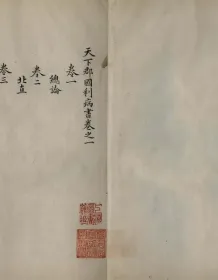 天下郡國利病書卷之一
卷一
總論
卷二
北直
卷三